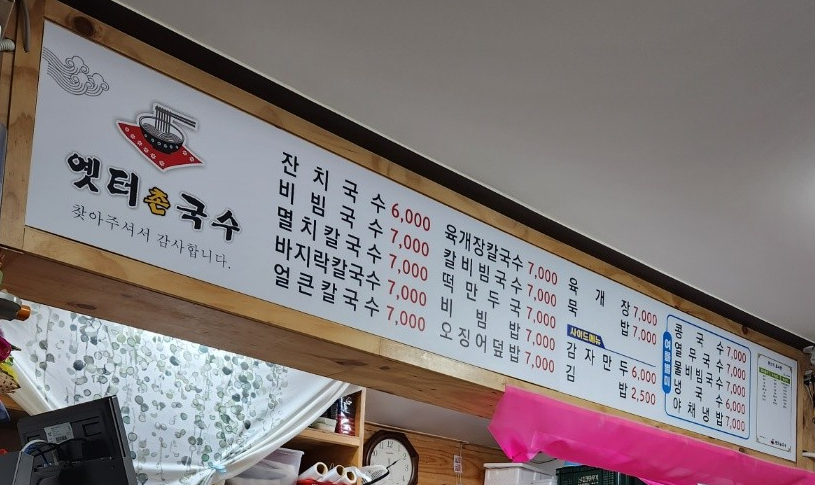 옛터촌국수
찾아주셔서 감사합니다.
잔치국수 6,000
비빔국수 7,000
멸치칼국수 7,000
바지락칼국수 7,000
얼큰칼국수 7,000
육개장칼국수 7,000
칼비빔국수 7,000
떡만두국 7,000
비빔밥 7,000
오징어덮밥 7,000
육개장 7,000
묵밥 7,000
사이드메뉴
감자만두 6,000
김밥 2,500
여름별미
콩국수 7,000
열무국수 7,000
물비빔국수 7,000
냉국수 6,000
야채냉밥 7,000